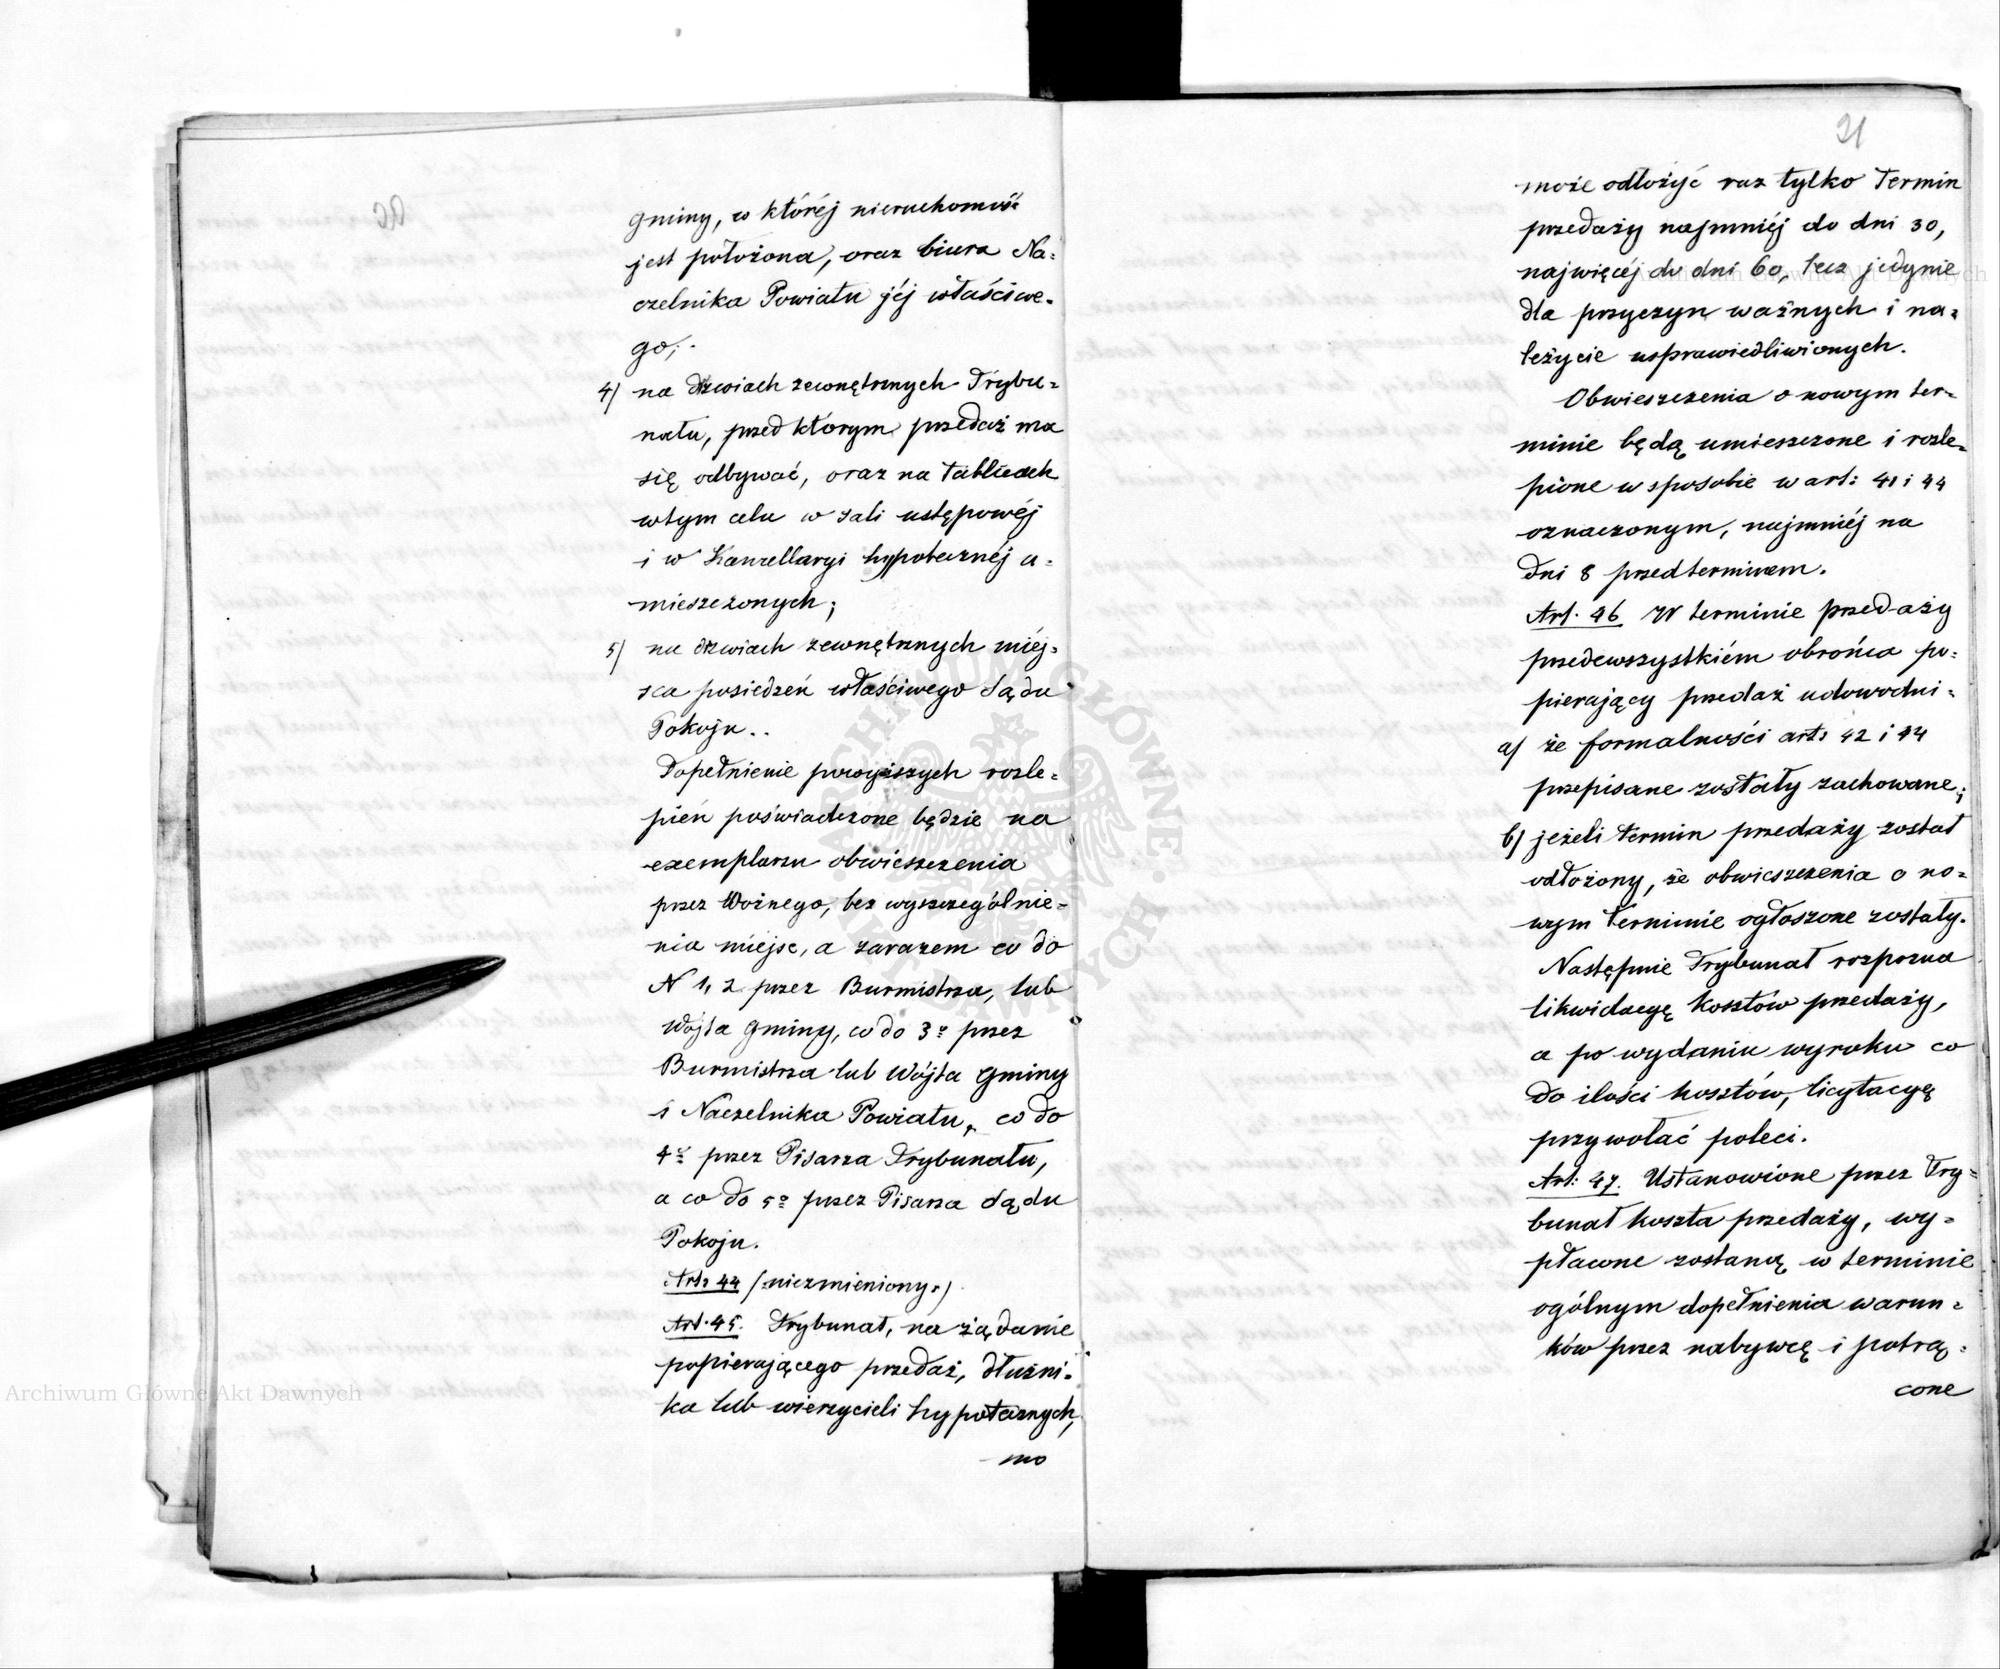 20
gminy, w któréj nieruchomość
jest położona, oraz biura Na-
czelnika Powiatu jéj właściwe-
go;
4) na drzwiach zewnętrznych Trybu-
nału, przed którym przedaż ma
się odbywać, oraz na tablicach
w tym celu w sali ustępowéj
i w Kancellaryi hypotecznéj u-
mieszczonych;
5) na drzwiach zewnętrznych miéj-
sca posiedzeń właściwego Sądu
Pokoju.
Dopełnienie powyższych rozle-
pień poświadczone będzie na
exemplarzu obwieszczenia
przez Woźnego, bez wyszczególnie-
nia miejsc, a zarazem co do
N 1, 2 przez Burmistrza, lub
Wójta gminy, co do 3º przez
Burmistrza lub Wójta Gminy
i Naczelnika Powiatu, co do
4º przez Pisarza Trybunału,
a co do 5º przez Pisarza Sądu
Pokoju.
Art: 44 (niezmieniony.)
Art. 45. Trybunał, na żądanie
popierającego przedaż, dłużni-
ka lub wierzycieli hypotecznych,
mo
21
może odłożyć raz tylko termin
przedaży najmniéj do dni 30,
najwięcéj do dni 60, lecz jedynie
dla przyczyn ważnych i na-
leżycie usprawiedliwionych.
Obwieszczenia o nowym ter-
minie będą umieszczone i rozle-
pione w sposobie w art: 41 i 44
oznaczonym, najmniéj na
dni 8 przed terminem.
Art. 46 W terminie przedaży
przedewszystkiém obrońca po-
pierający przedaż udowodni-
a) że formalności art: 42 i 44
przepisane zostały zachowane;
b) jeżeli termin przedaży został
odłożony, że obwieszczenia o no-
wym terminie ogłoszone zostały.
Następnie Trybunał rozpozna
likwidacyę kosztów przedaży,
a po wydaniu wyroku co
do ilości kosztów, licytacyę
przywołać poleci.
Art: 47. Ustanowione przez Try-
bunał koszta przedaży, wy-
płacone zostaną w terminie
ogólnym dopełnienia warun-
ków przez nabywcę i potrą-
cone
Archiwum Główne Akt Dawnych
Archiwum Główne Akt Dawnych
ARCHIWUM GŁÓWNE AKT DAWNYCH